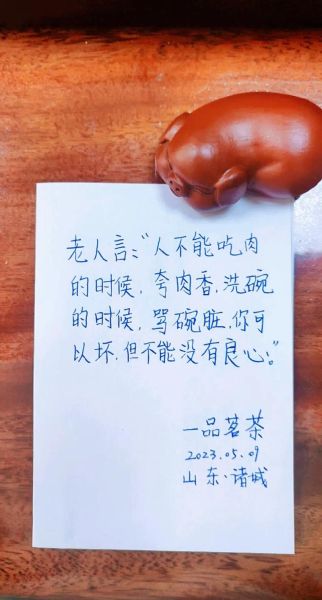 老人言:“人不能吃肉
的时候,夸肉香,洗碗
的时候,骂碗脏,你可
以坏,但不能没有良心!”
一品茗茶
2023.05.09
山东·诸城